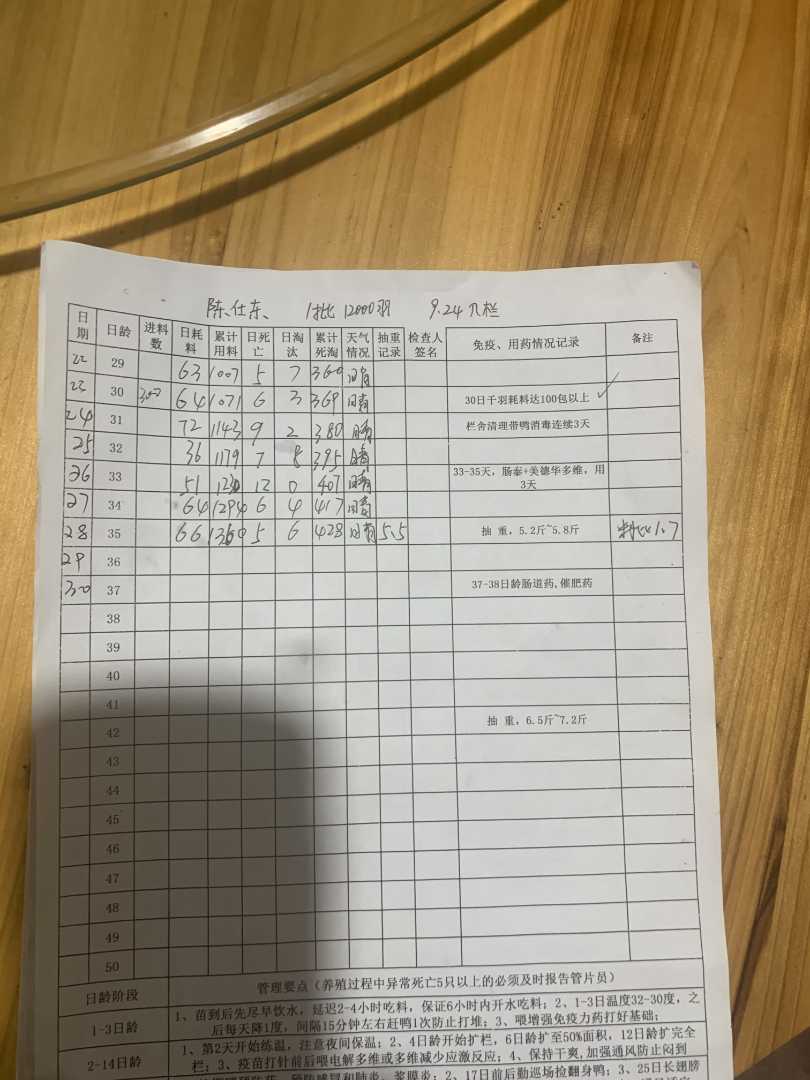 陈仕东、 1批 12000羽 9.24入栏
日期 日龄 进料数 日耗料 累计用料 日死亡 日淘汰 累计死淘 天气情况 抽重记录 检查人签名 免疫、用药情况记录 备注
22 29 63 1007 5 7 360 晴
23 30 300 64 1071 6 3 369 晴 30日千羽耗料达100包以上 ✓
24 31 72 1143 9 2 380 晴 栏舍清理带鸭消毒连续3天
25 32 36 1179 7 8 395 晴
26 33 51 1230 12 0 407 晴 33-35天，肠泰+美德华多维，用3天
27 34 64 1294 6 4 417 晴
28 35 66 1360 5 6 428 晴 5.5 抽 重，5.2斤~5.8斤 料比1.7
29 36
30 37 37-38日龄肠道药,催肥药
38
39
40
41
42 抽 重，6.5斤~7.2斤
43
44
45
46
47
48
49
50
日龄阶段 管理要点（养殖过程中异常死亡5只以上的必须及时报告管片员）
1-3日龄 1、苗到后先尽早饮水，延迟2-4小时吃料，保证6小时内开水吃料；2、1-3日温度32-30度，之
后每天降1度，间隔15分钟左右赶鸭1次防止打堆；3、喂增强免疫力药打好基础；
2-14日龄 1、第2天开始练温，注意夜间保温；2、4日龄开始扩栏，6日龄扩至50%面积，12日龄扩完全
栏；3、疫苗打针前后喂电解多维或多维减少应激反应；4、保持干爽,加强通风防止闷到
预防感冒和肺炎、浆膜炎；2、17日前后勤巡场捡翻身鸭；3、25日长翅膀